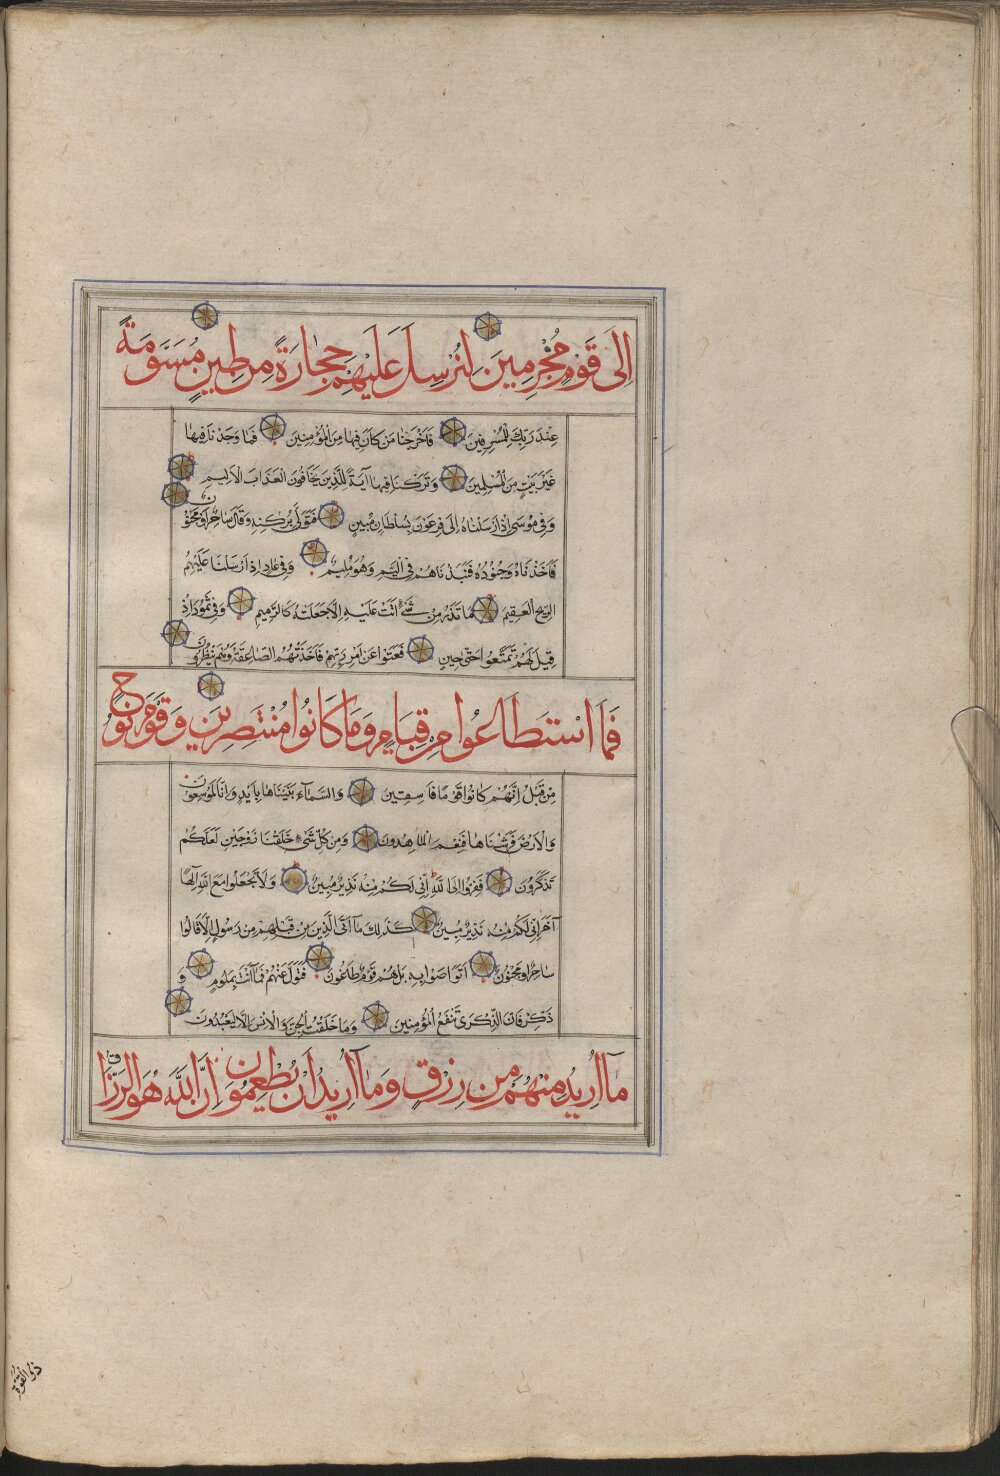 اِلٰى قَوْمٍ مُجْرِمِينَ لِنُرْسِلَ عَلَيْهِمْ حِجَارَةً مِنْ طِينٍ مُسَوَّمَةً
عِنْدَ رَبِّكَ لِلْمُسْرِفِينَ فَاَخْرَجْنَا مَنْ كَانَ فِيهَا مِنَ الْمُؤْمِنِينَ فَمَا وَجَدْنَا فِيهَا
غَيْرَ بَيْتٍ مِنَ الْمُسْلِمِينَ وَتَرَكْنَا فِيهَا آيَةً لِلَّذِينَ يَخَافُونَ الْعَذَابَ الْاَلِيمَ
وَفِي مُوسَى اِذْ اَرْسَلْنَاهُ اِلَى فِرْعَوْنَ بِسُلْطَانٍ مُبِينٍ فَتَوَلَّى بِرُكْنِهِ وَقَالَ سَاحِرٌ اَوْ مَجْنُونٌ
فَاَخَذْنَاهُ وَجُنُودَهُ فَنَبَذْنَاهُمْ فِي الْيَمِّ وَهُوَ مُلِيمٌ وَفِي عَادٍ اِذْ اَرْسَلْنَا عَلَيْهِمُ
الرِّيحَ الْعَقِيمَ مَا تَذَرُ مِنْ شَيْءٍ اَتَتْ عَلَيْهِ اِلَّا جَعَلَتْهُ كَالرَّمِيمِ وَفِي ثَمُودَ اِذْ
قِيلَ لَهُمْ تَمَتَّعُوا حَتَّى حِينٍ فَعَتَوْا عَنْ اَمْرِ رَبِّهِمْ فَاَخَذَتْهُمُ الصَّاعِقَةُ وَهُمْ يَنْظُرُونَ
فَمَا اسْتَطَاعُوا مِنْ قِيَامٍ وَمَا كَانُوا مُنْتَصِرِينَ وَقَوْمَ نُوحٍ
مِنْ قَبْلُ اِنَّهُمْ كَانُوا قَوْمًا فَاسِقِينَ وَالسَّمَاءَ بَنَيْنَاهَا بِاَيْدٍ وَاِنَّا لَمُوسِعُونَ
وَالْاَرْضَ فَرَشْنَاهَا فَنِعْمَ الْمَاهِدُونَ وَمِنْ كُلِّ شَيْءٍ خَلَقْنَا زَوْجَيْنِ لَعَلَّكُمْ
تَذَكَّرُونَ فَفِرُّوا اِلَى اللَّهِ اِنِّي لَكُمْ مِنْهُ نَذِيرٌ مُبِينٌ وَلَا تَجْعَلُوا مَعَ اللَّهِ اِلٰهًا
آخَرَ اِنِّي لَكُمْ مِنْهُ نَذِيرٌ مُبِينٌ كَذٰلِكَ مَا اَتَى الَّذِينَ مِنْ قَبْلِهِمْ مِنْ رَسُولٍ اِلَّا قَالُوا
سَاحِرٌ اَوْ مَجْنُونٌ اَتَوَاصَوْا بِهِ بَلْ هُمْ قَوْمٌ طَاغُونَ فَتَوَلَّ عَنْهُمْ فَمَا اَنْتَ بِمَلُومٍ وَ
ذَكِّرْ فَاِنَّ الذِّكْرَى تَنْفَعُ الْمُؤْمِنِينَ وَمَا خَلَقْتُ الْجِنَّ وَالْاِنْسَ اِلَّا لِيَعْبُدُونِ
مَا اُرِيدُ مِنْهُمْ مِنْ رِزْقٍ وَمَا اُرِيدُ اَنْ يُطْعِمُونِ اِنَّ اللَّهَ هُوَ الرَّزَّاقُ
ذُو الْقُوَّةِ